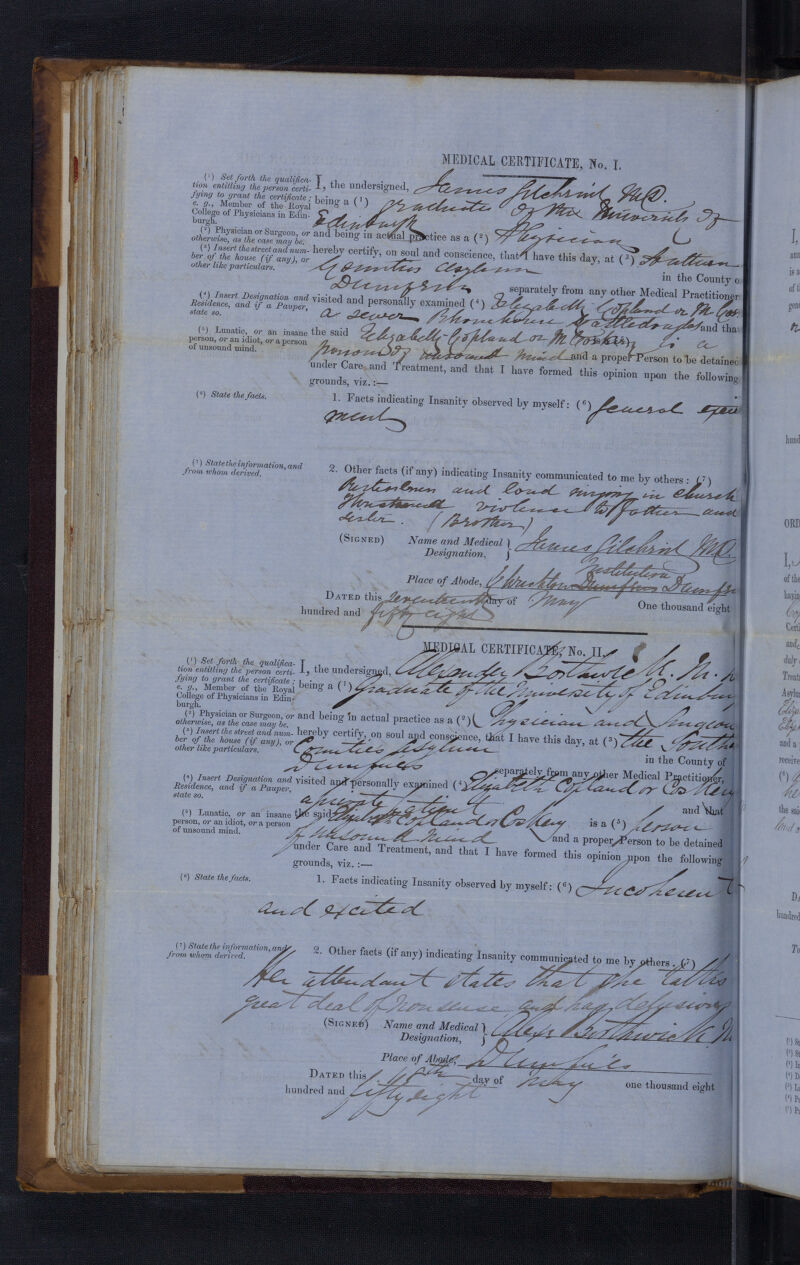 MEDICAL CERTIFICATE, No. I.
(¹) Set forth the qualifica-
tion entitling the person certi-
fying to grant the certificate;
e. g., Member of the Royal
College of Physicians in Edin-
burgh.
I, the undersigned, James Gilchrist M.D.
being a (¹) graduate of the University of
Edinburgh
(²) Physician or Surgeon, or
otherwise, as the case may be.
and being in actual practice as a (²) Physician
(³) Insert the street and num-
ber of the house (if any), or
other like particulars.
hereby certify, on soul and conscience, that I have this day, at (³) Southern
Counties Asylum in the County o
Dumfries separately from any other Medical Practitioner
(⁴) Insert Designation and
Residence, and if a Pauper,
state so.
visited and personally examined (⁴) Elizabeth Copland or Mc
a sewer Rhonehouse and tha
(⁵) Lunatic, or an insane
person, or an idiot, or a person
of unsound mind.
the said Elizabeth Copland or is a
person of unsound mind and a proper Person to be detained
under Care and Treatment, and that I have formed this opinion upon the following
grounds, viz.:—
(⁶) State the facts.
1. Facts indicating Insanity observed by myself: (⁶) General excite
ment
(⁷) State the information, and
from whom derived.
2. Other facts (if any) indicating Insanity communicated to me by others: (⁷)
Restlessness and loud singing in church
Threatened violence to father and
sister. (Brother)
(SIGNED) Name and Medical Designation, James Gilchrist M.D.
Institution
Place of Abode, Crichton Dumfries Dumfr
DATED this seventeenth day of May One thousand eight
hundred and fifty eight
MEDICAL CERTIFICATE, No. II.
(¹) Set forth the qualifica-
tion entitling the person certi-
fying to grant the certificate;
e. g., Member of the Royal
College of Physicians in Edin-
burgh.
I, the undersigned, Alexander Borthwick
being a (¹) Graduate of the University of Edinbur
(²) Physician or Surgeon, or
otherwise, as the case may be.
and being in actual practice as a (²) Physician and Surgeon
(³) Insert the street and num-
ber of the house (if any), or
other like particulars.
hereby certify, on soul and conscience, that I have this day, at (³) the South
Counties Asylum in the County of
Dumfries separately from any other Medical Practitioner,
(⁴) Insert Designation and
Residence, and if a Pauper,
state so.
visited and personally examined (⁴) Elizabeth Copland or CosKery
a private patient and that
(⁵) Lunatic, or an insane
person, or an idiot, or a person
of unsound mind.
the said Elizabeth Copland or CosKery is a (⁵) person
of unsound mind and a proper Person to be detained
under Care and Treatment, and that I have formed this opinion upon the following
grounds, viz.:—
(⁶) State the facts.
1. Facts indicating Insanity observed by myself: (⁶) Incoherent
and excited
(⁷) State the information, and
from whom derived.
2. Other facts (if any) indicating Insanity communicated to me by others. (⁷)
Her attendant states that she talks
great deal of nonsense and has delusions
(SIGNED) Name and Medical Designation, Alexr Borthwick
Place of Abode, Dumfries
DATED this day of May one thousand eight
hundred and fifty eight